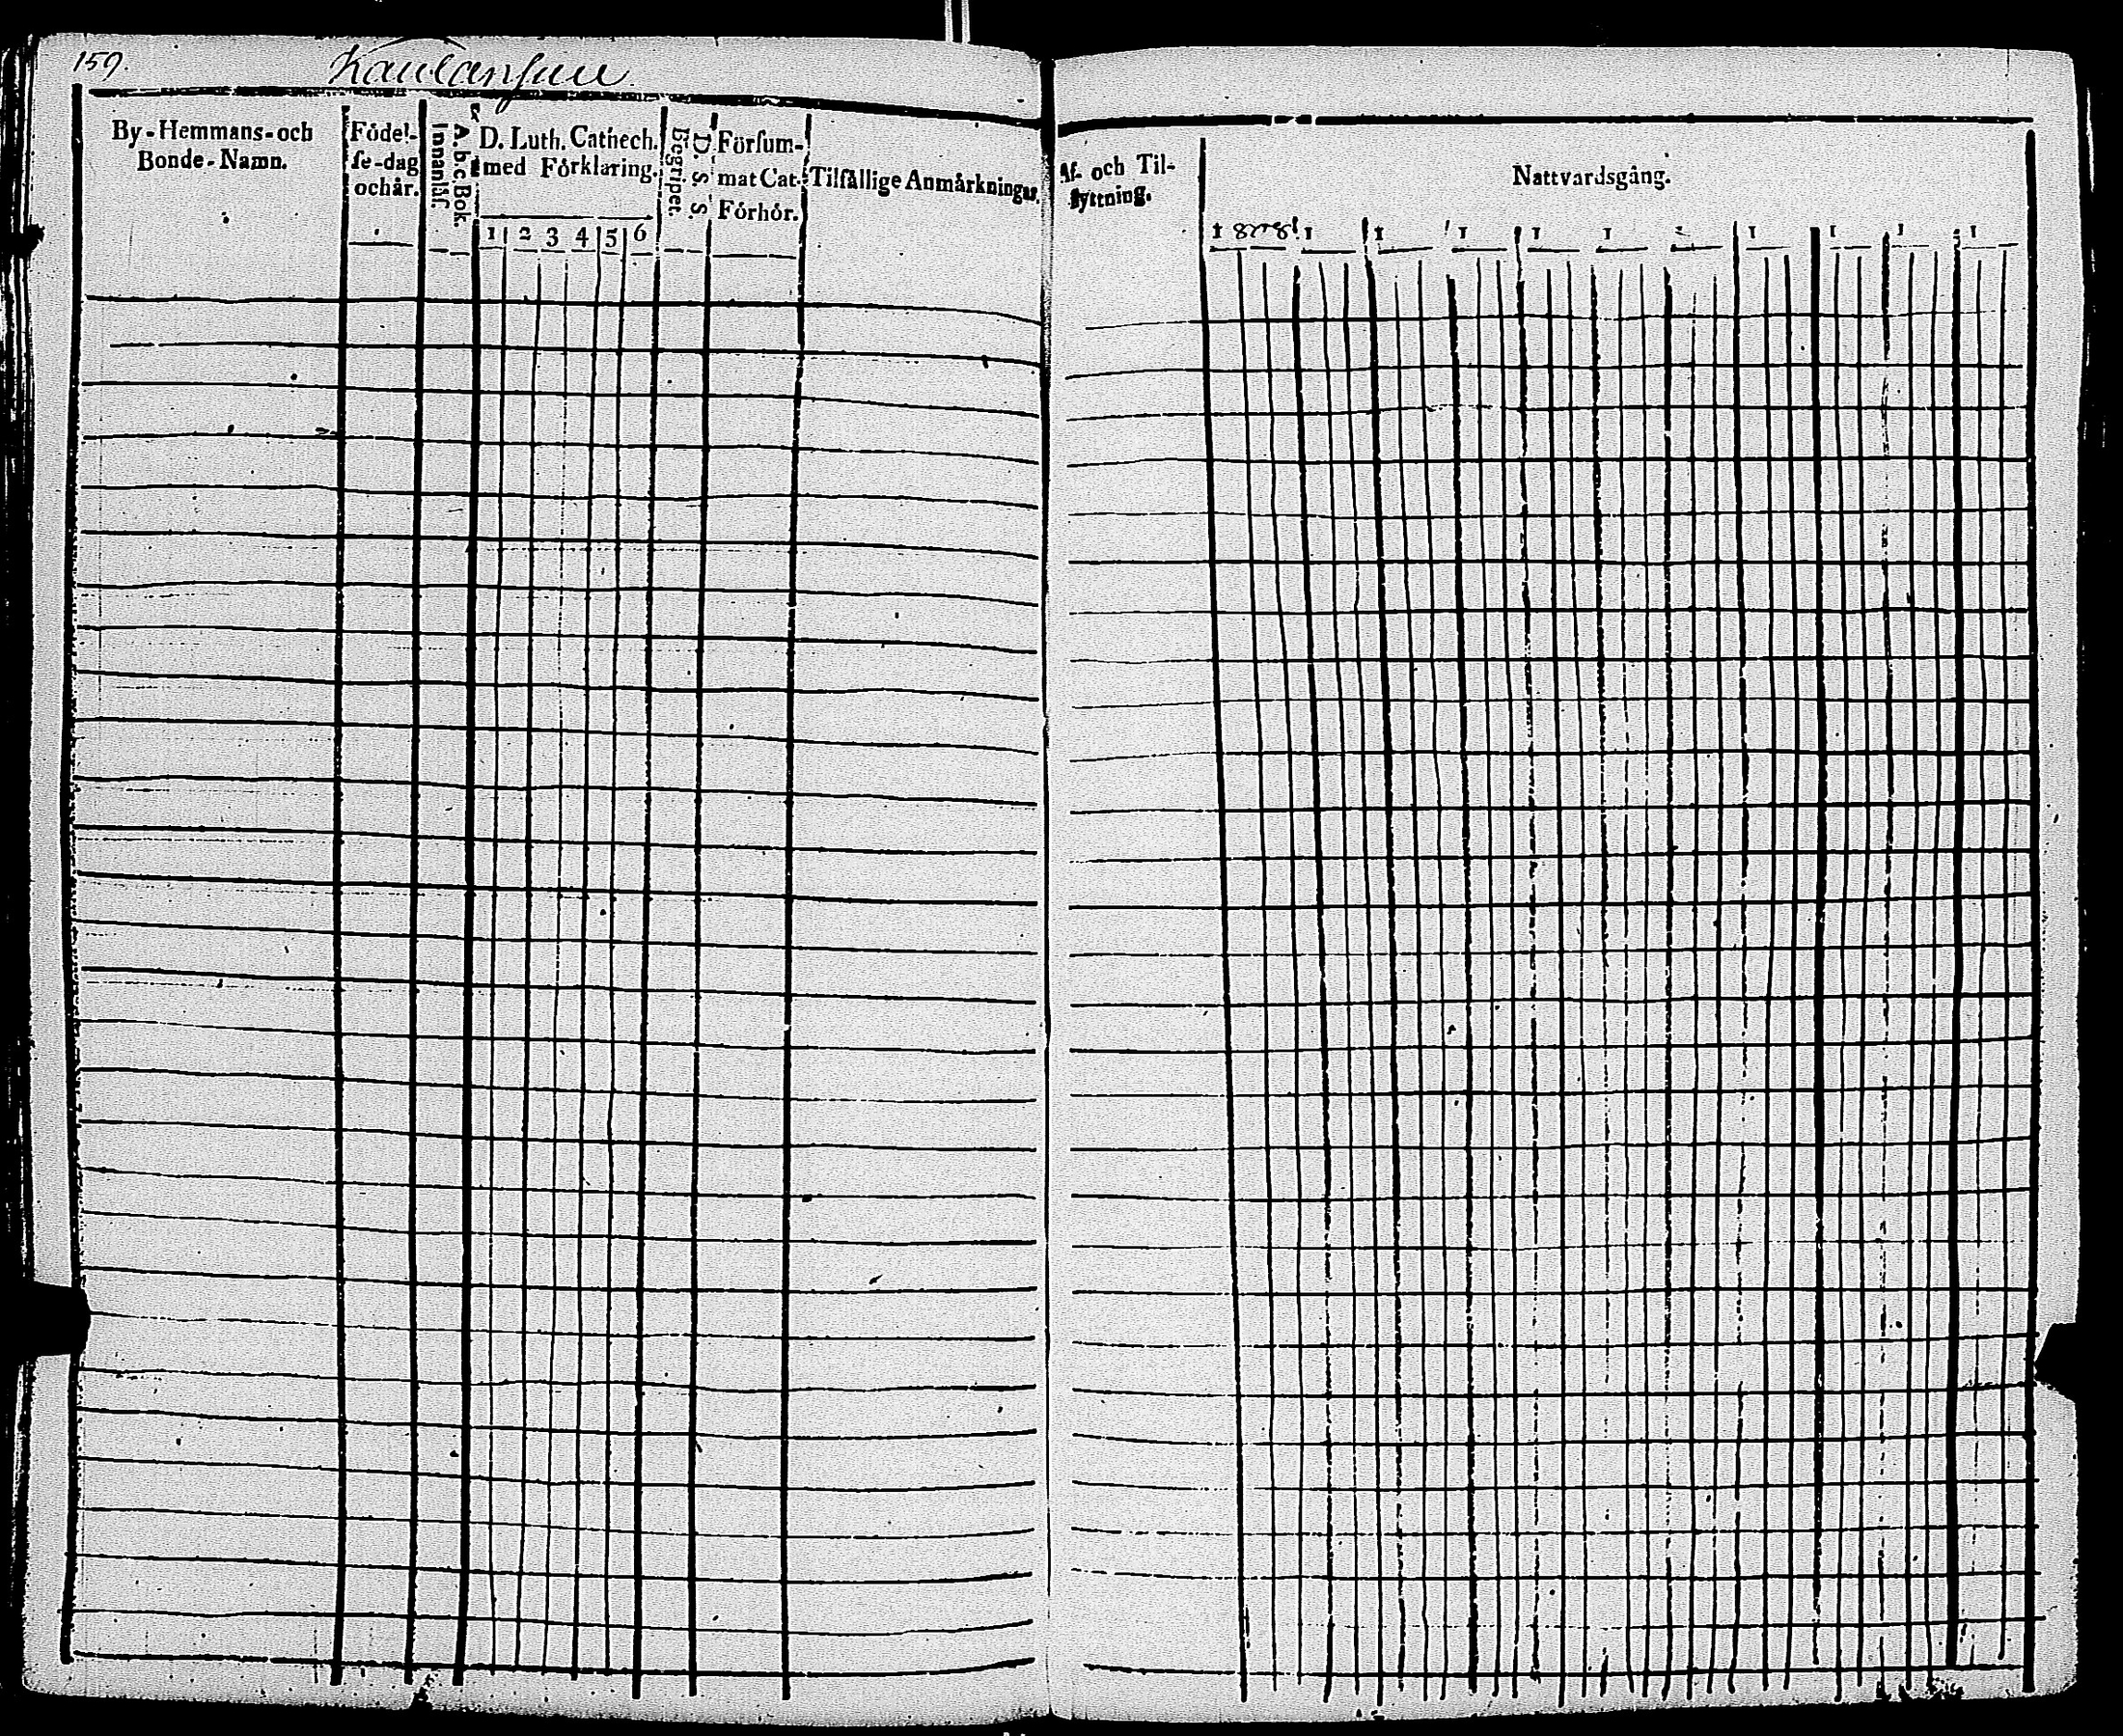 159.
By-Hemmans-och
Bonde-Namn.
Födel-
se-dag
och år.
A. b. c. Bok.
Innanläs.
D. Luth. Cathech.
med Förklaring.
1 2 3 4 5 6
Begripet.
D. S. S.
Försum-
mat Cat.
Förhör.
Tilfällige Anmärkningar.
Af- och Til-
flyttning.
Nattvardsgång.
1 1 1 1 1 1 1 1 1 1